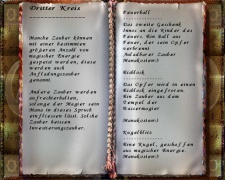 Dritter Kreis
Manche Zauber können
mit einer bestimmten
größeren Anzahl von
magischer Energie
gespeist werden, diese
werden auch
Aufladungszauber
genannt.
Andere Zauber werden
aufrechterhalten,
solange der Magier sein
Mana in diesen Spruch
einfliessen läßt. Solche
Zauber heissen
Investierungszauber.
Feuerball
Das zweite Geschenk
Innos an die Kinder des
Feuers. Ein Ball aus
Feuer, der sein Opfer
verbrennt.
Aufladbarer Zauber
Manakosten:
Eisblock
Das Opfer wird in einen
Eisblock eingefroren.
Ein Zauber aus dem
Tempel der
Wassermagier
Manakosten:
Kugelblitz
Eine Kugel, geschaffen
aus magischer Energie.
Manakosten: